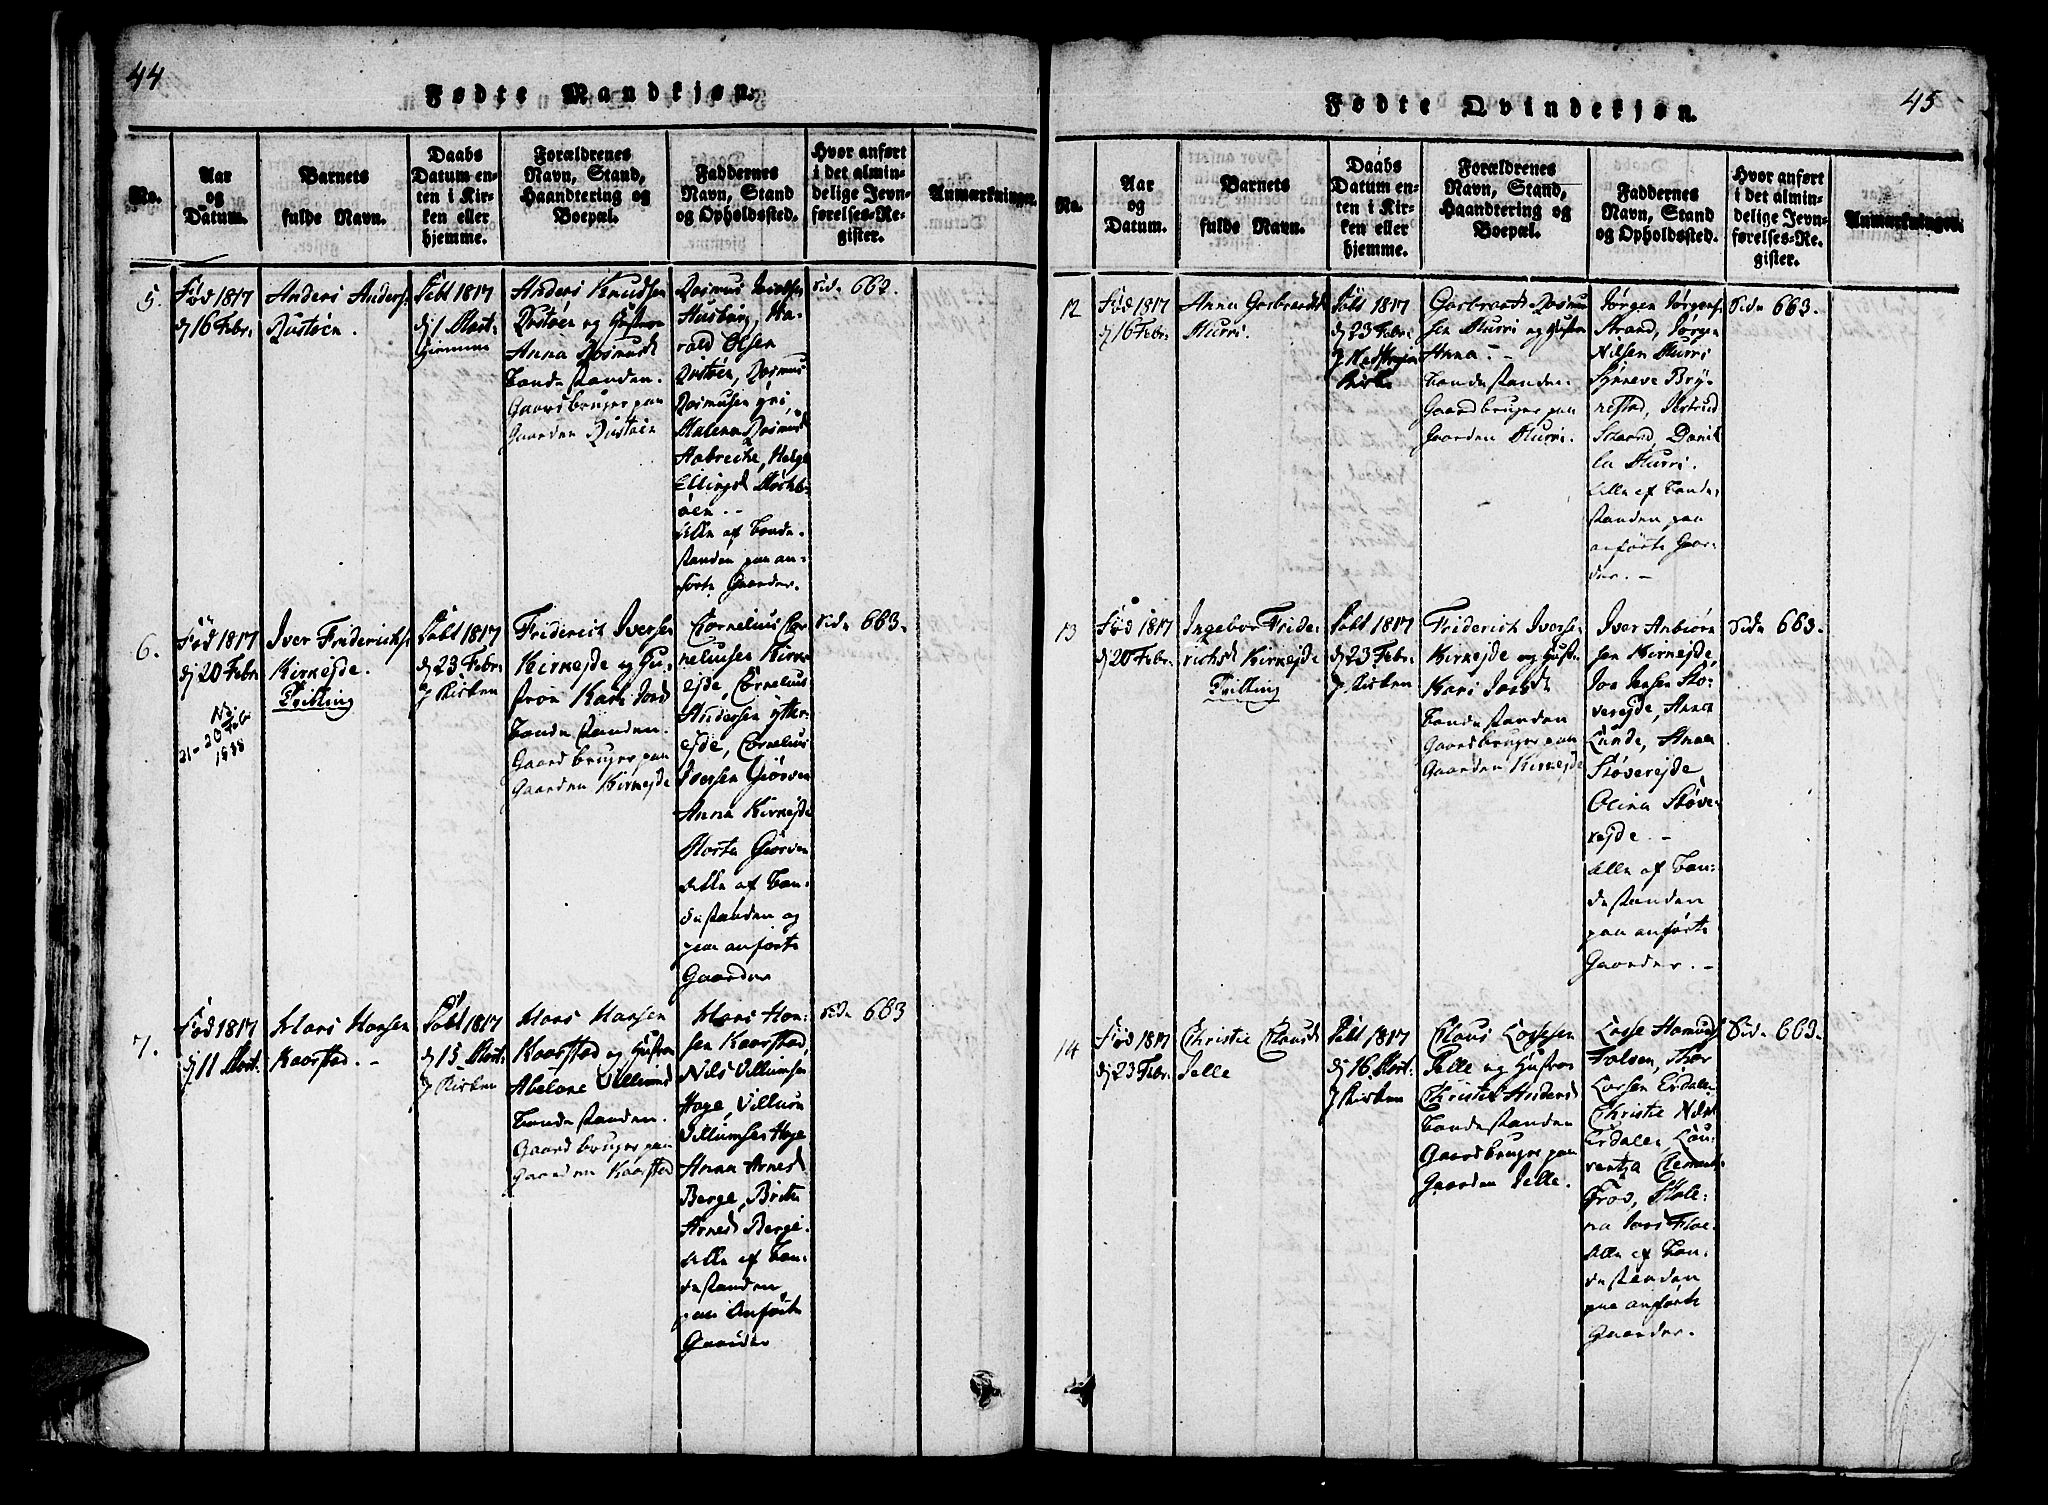 44
Fødte Mandkjøn.
No.
Aar
og
Datum.
Barnets
fulde Navn.
Daabs
Datum en-
ten i Kir-
ken eller
hjemme.
Forældrenes
Navn, Stand,
Haandtering og
Boepæl.
Faddernes
Navn, Stand
og Opholdssted.
Hvor anført
i det almin-
delige Jevn-
førelses-Re-
gister.
Anmærkninger.
5.
Fød 1817
d 16 Febr.
Anders Anders
Rustøen.
Døbt 1817
d 1 Mart.
hjemme
Anders Knudsen
Rustøen og Hustroe
Anna Rasmusd
Bondestanden.
Gaardbruger paa
Gaarden Rustøen
Rasmus
Husbye, Ha-
rald Olsen
Rustøen, Rasmus
Rasmusen
Malena Rasmusd
Helge
Ellingsd
øen. --
Alle af Bonde-
standen paa an-
førte Gaarder.
Side 662.
6.
Fød 1817
d 20 Febr
Iver Friderichs
Kirkeejde.
Tvilling
Døbt 1817
d 23 Febr
i Kirken
Friderich Iversen
Kirkeejde og Hu-
stroe Kari
Bondestanden.
Gaardbruger paa
Gaarden Kirkeejde
Cornelius Cor-
neliusen Kirke-
ejde, Cornelius
Andersen Ytter-
ejde, Cornelius
Iversen Giørven
Anna Kirkeejde
Marta Giørven
Alle af Bon-
destanden og
paa anførte
Gaarder
Side 663.
7.
Fød 1817
d 11 Mart.
Hans Hansen
Kaarstad. -
Døbt 1817
d 15 Mart.
i Kirken
Hans Hansen
Kaarstad og Hustroe
Abelone Villumsd
Bondestanden.
Gaardbruger paa
Gaarden Kaarstad
Hans Han-
sen Kaarstad
Nils Villumsen
Hage, Villum
Villumsen Hage
Anna Arnesd
Berge, Brite
Arnesd Berge.
Alle af Bon-
destanden
paa anførte
Gaarder
Side 663
45
Fødte Qvindekjøn.
No.
Aar
og
Datum.
Barnets
fulde Navn.
Daabs
Datum en-
ten i Kir-
ken eller
hjemme.
Forældrenes
Navn, Stand,
Haandtering og
Boepæl.
Faddernes
Navn, Stand
og Opholdssted.
Hvor anført
i det almin-
delige Jevn-
førelses-Re-
gister.
Anmærkninger.
12
Fød 1817
d 16 Febr.
Anna Gasbrandsd
Murri.
Døbt 1817
d 23 Febr.
i
Kirke
Gasbrand Rasmu-
sen Murri og Hustroe
Anna. -
Bondestanden.
Gaardbruger paa
Gaarden Murri.
Jørgen Jørgens
Strand, Jørgen
Nilsen Murri
Synneve Bry-
nestad, Jertrud
Skaard, Danie-
la Murri.
Alle af Bonde-
standen paa
anførte Gaar-
der. -
Side 663.
13
Fød 1817
d 20 Febr.
Ingebor Fride-
richsd Kirkeejde
Tvilling
Døbt 1817
d 23 Febr.
i Kirken
Friderich Iverse-
Kirkeejde og Hustr.
Kari
Bondestanden
Gaardbruger paa
Gaarden Kirkeejde
Iver Anbiørn-
sen Kirkeejde,
Jon Jensen Stø-
verejde, Anna
Lunde, Anna
Støverejde
Olina Støve-
rejde. -
Alle af Bon-
destanden
paa anførte
Gaarder. -
Side 663.
14
Fød 1817
d 23 Febr.
Christie Clausd
Jelle
Døbt 1817
d 16 Mart.
i Kirken
Claus Lassesen
Jelle og Hustroe
Christie Andersd
Bondestanden
Gaardbruger paa
Gaarden Jelle.
Lasse
Folven, Thor
Larsen Erdalen
Christie Nilsd
Erdalen, Lau-
rentza
Frøs, Male-
na Floe
Alle af Bon-
destanden
paa anførte
Gaarder.
Side 663.